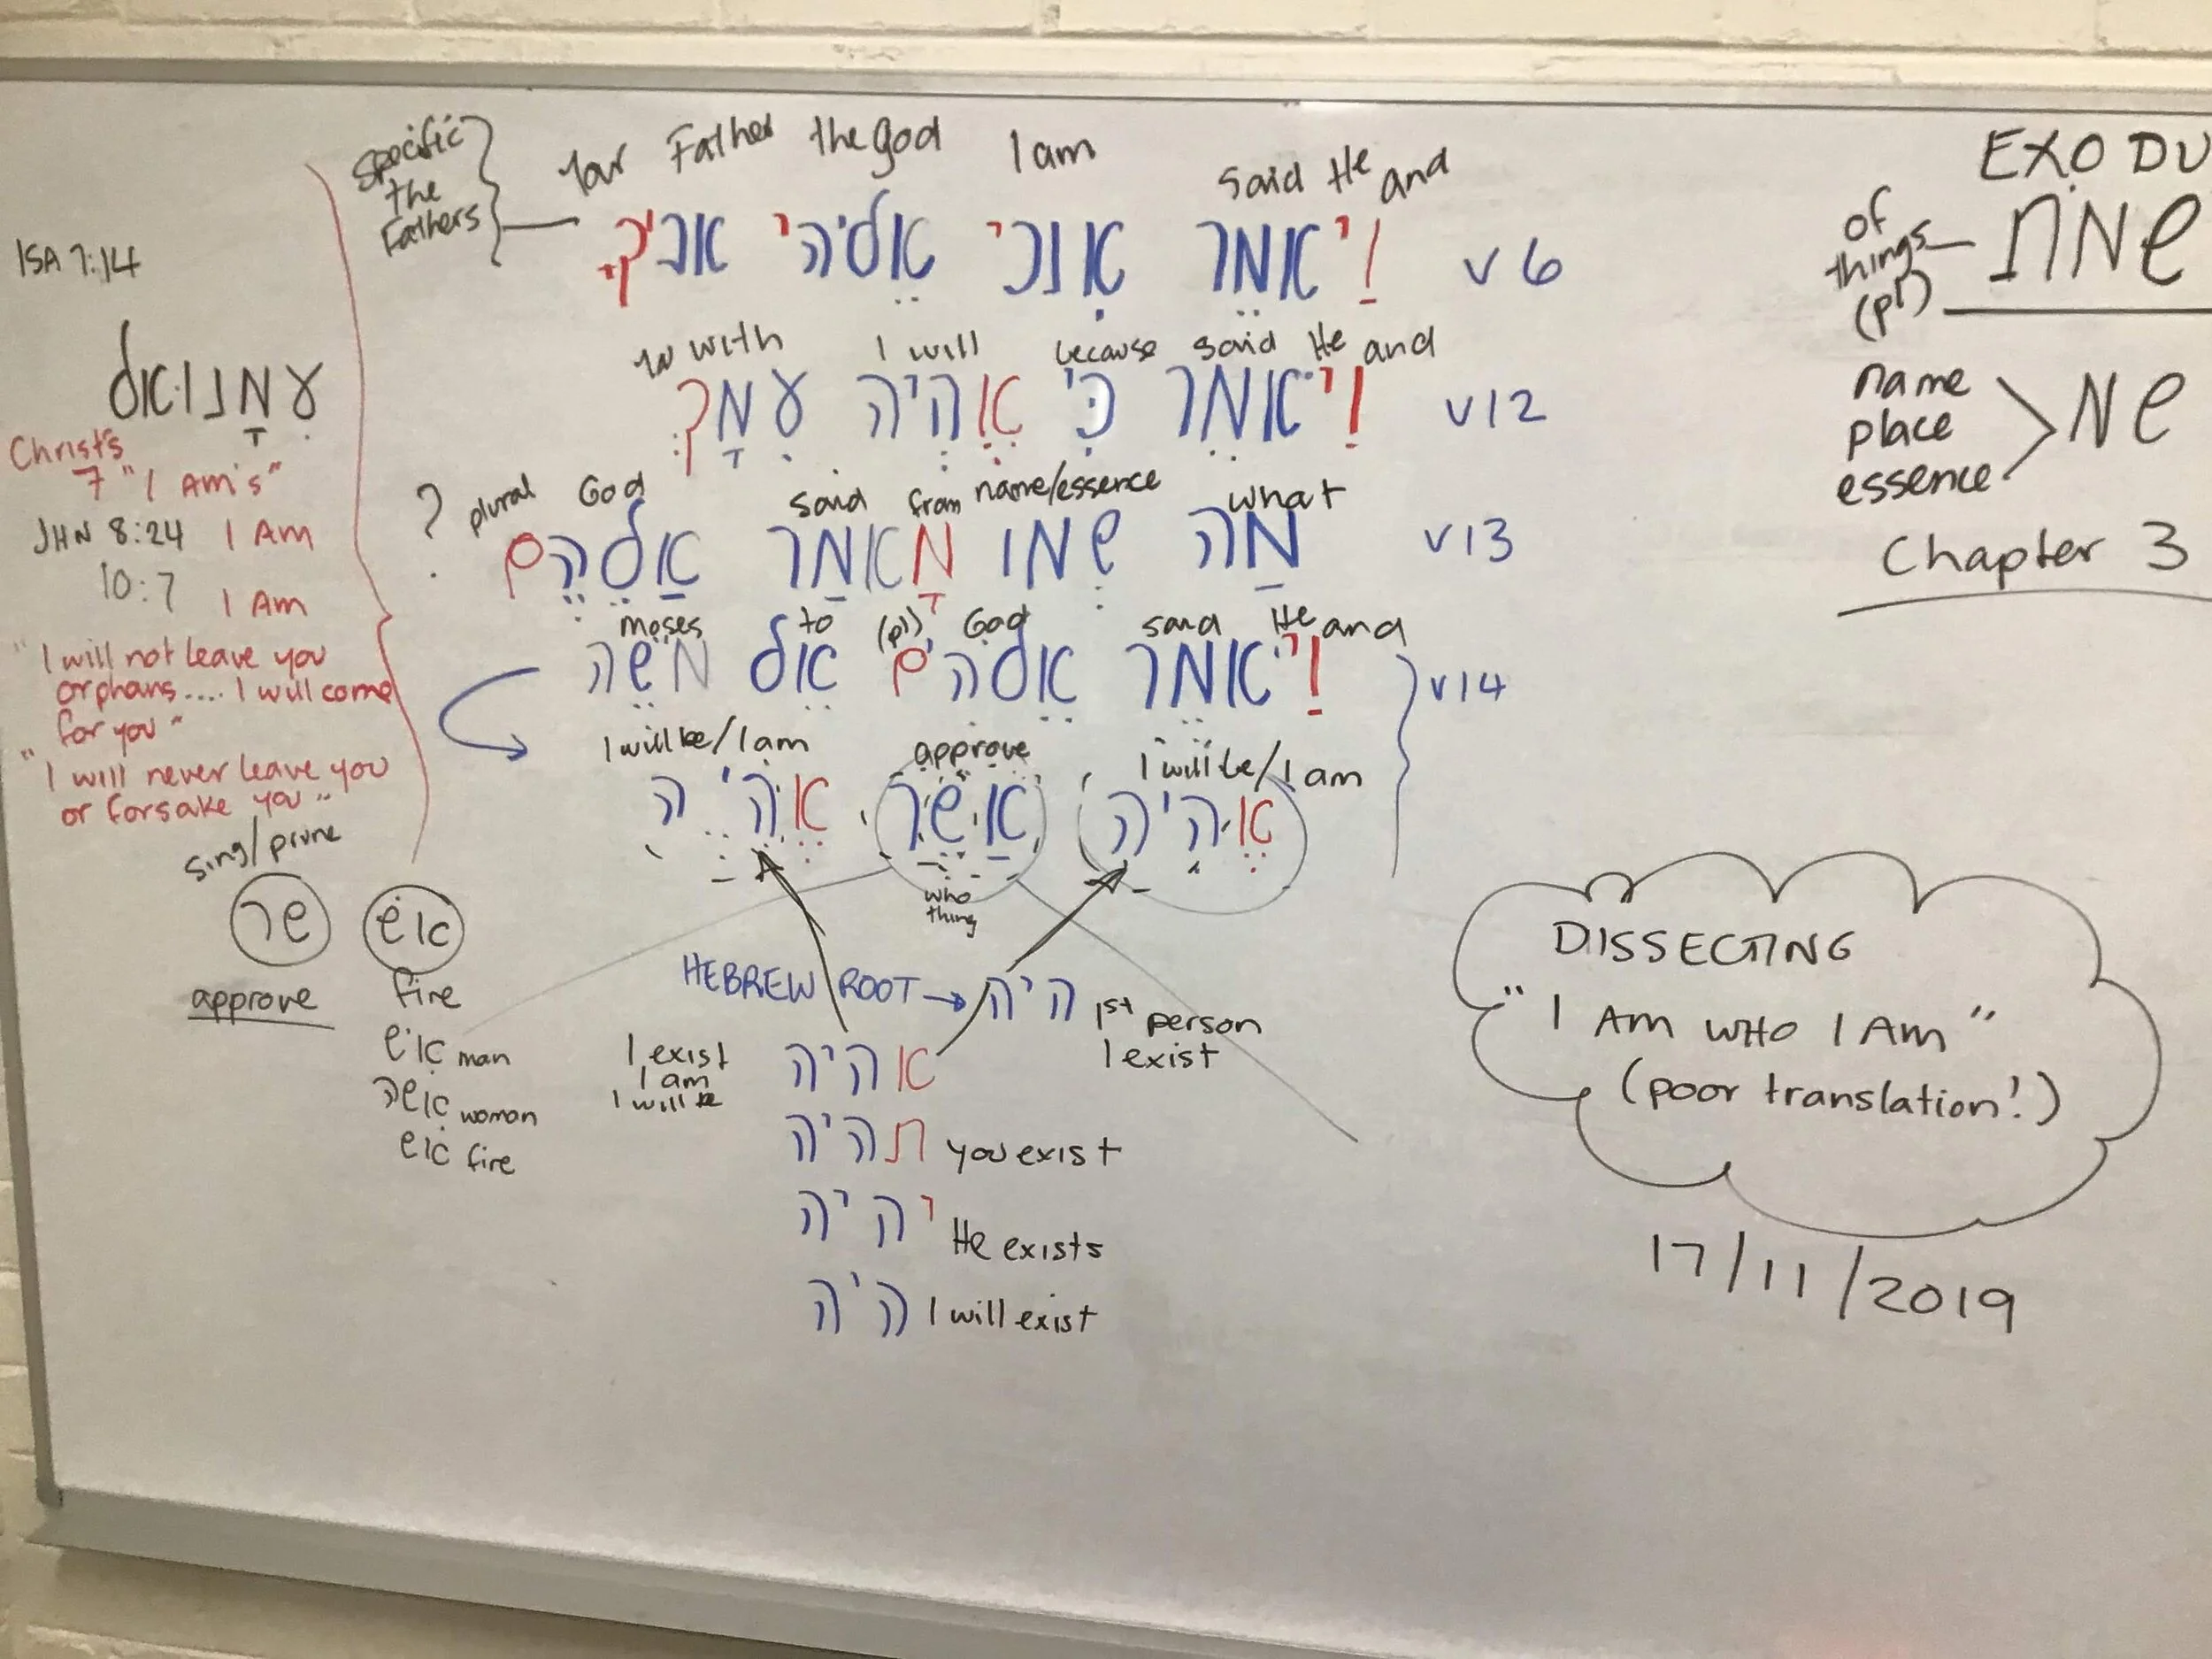 EXODU
of
things
(pl)
שמת
name
place
essence
שמ
Chapter 3
Specific
the
Fathers
Your Father the god I am Said He and
ויאמר אנכי אליהי אביך v6
with I will because said He and
ויאמר כי אהיה עמך v12
? plural God said from name/essence what
מה שמו מאמר אלהם v13
moses to (pl) God said He and
ויאמר אלהים אל משה v14
I will be/I am approve I will be/I am
אהיה אשר אהיה
who
thing
HEBREW ROOT → היה 1st person
I exist
I exist
I am
I will be
אהיה
תהיה you exist
יהיה He exists
היה I will exist
ISA 7:14
עמנואל
Christ's
7 "I Am's"
JHN 8:24 I Am
10:7 I Am
"I will not leave you
orphans.... I will come
for you"
"I will never leave you
or forsake you"
sing/prune
שר אש
approve fire
איש man
אישה woman
אש fire
DISSECTING
"I AM WHO I AM"
(poor translation!)
17/11/2019